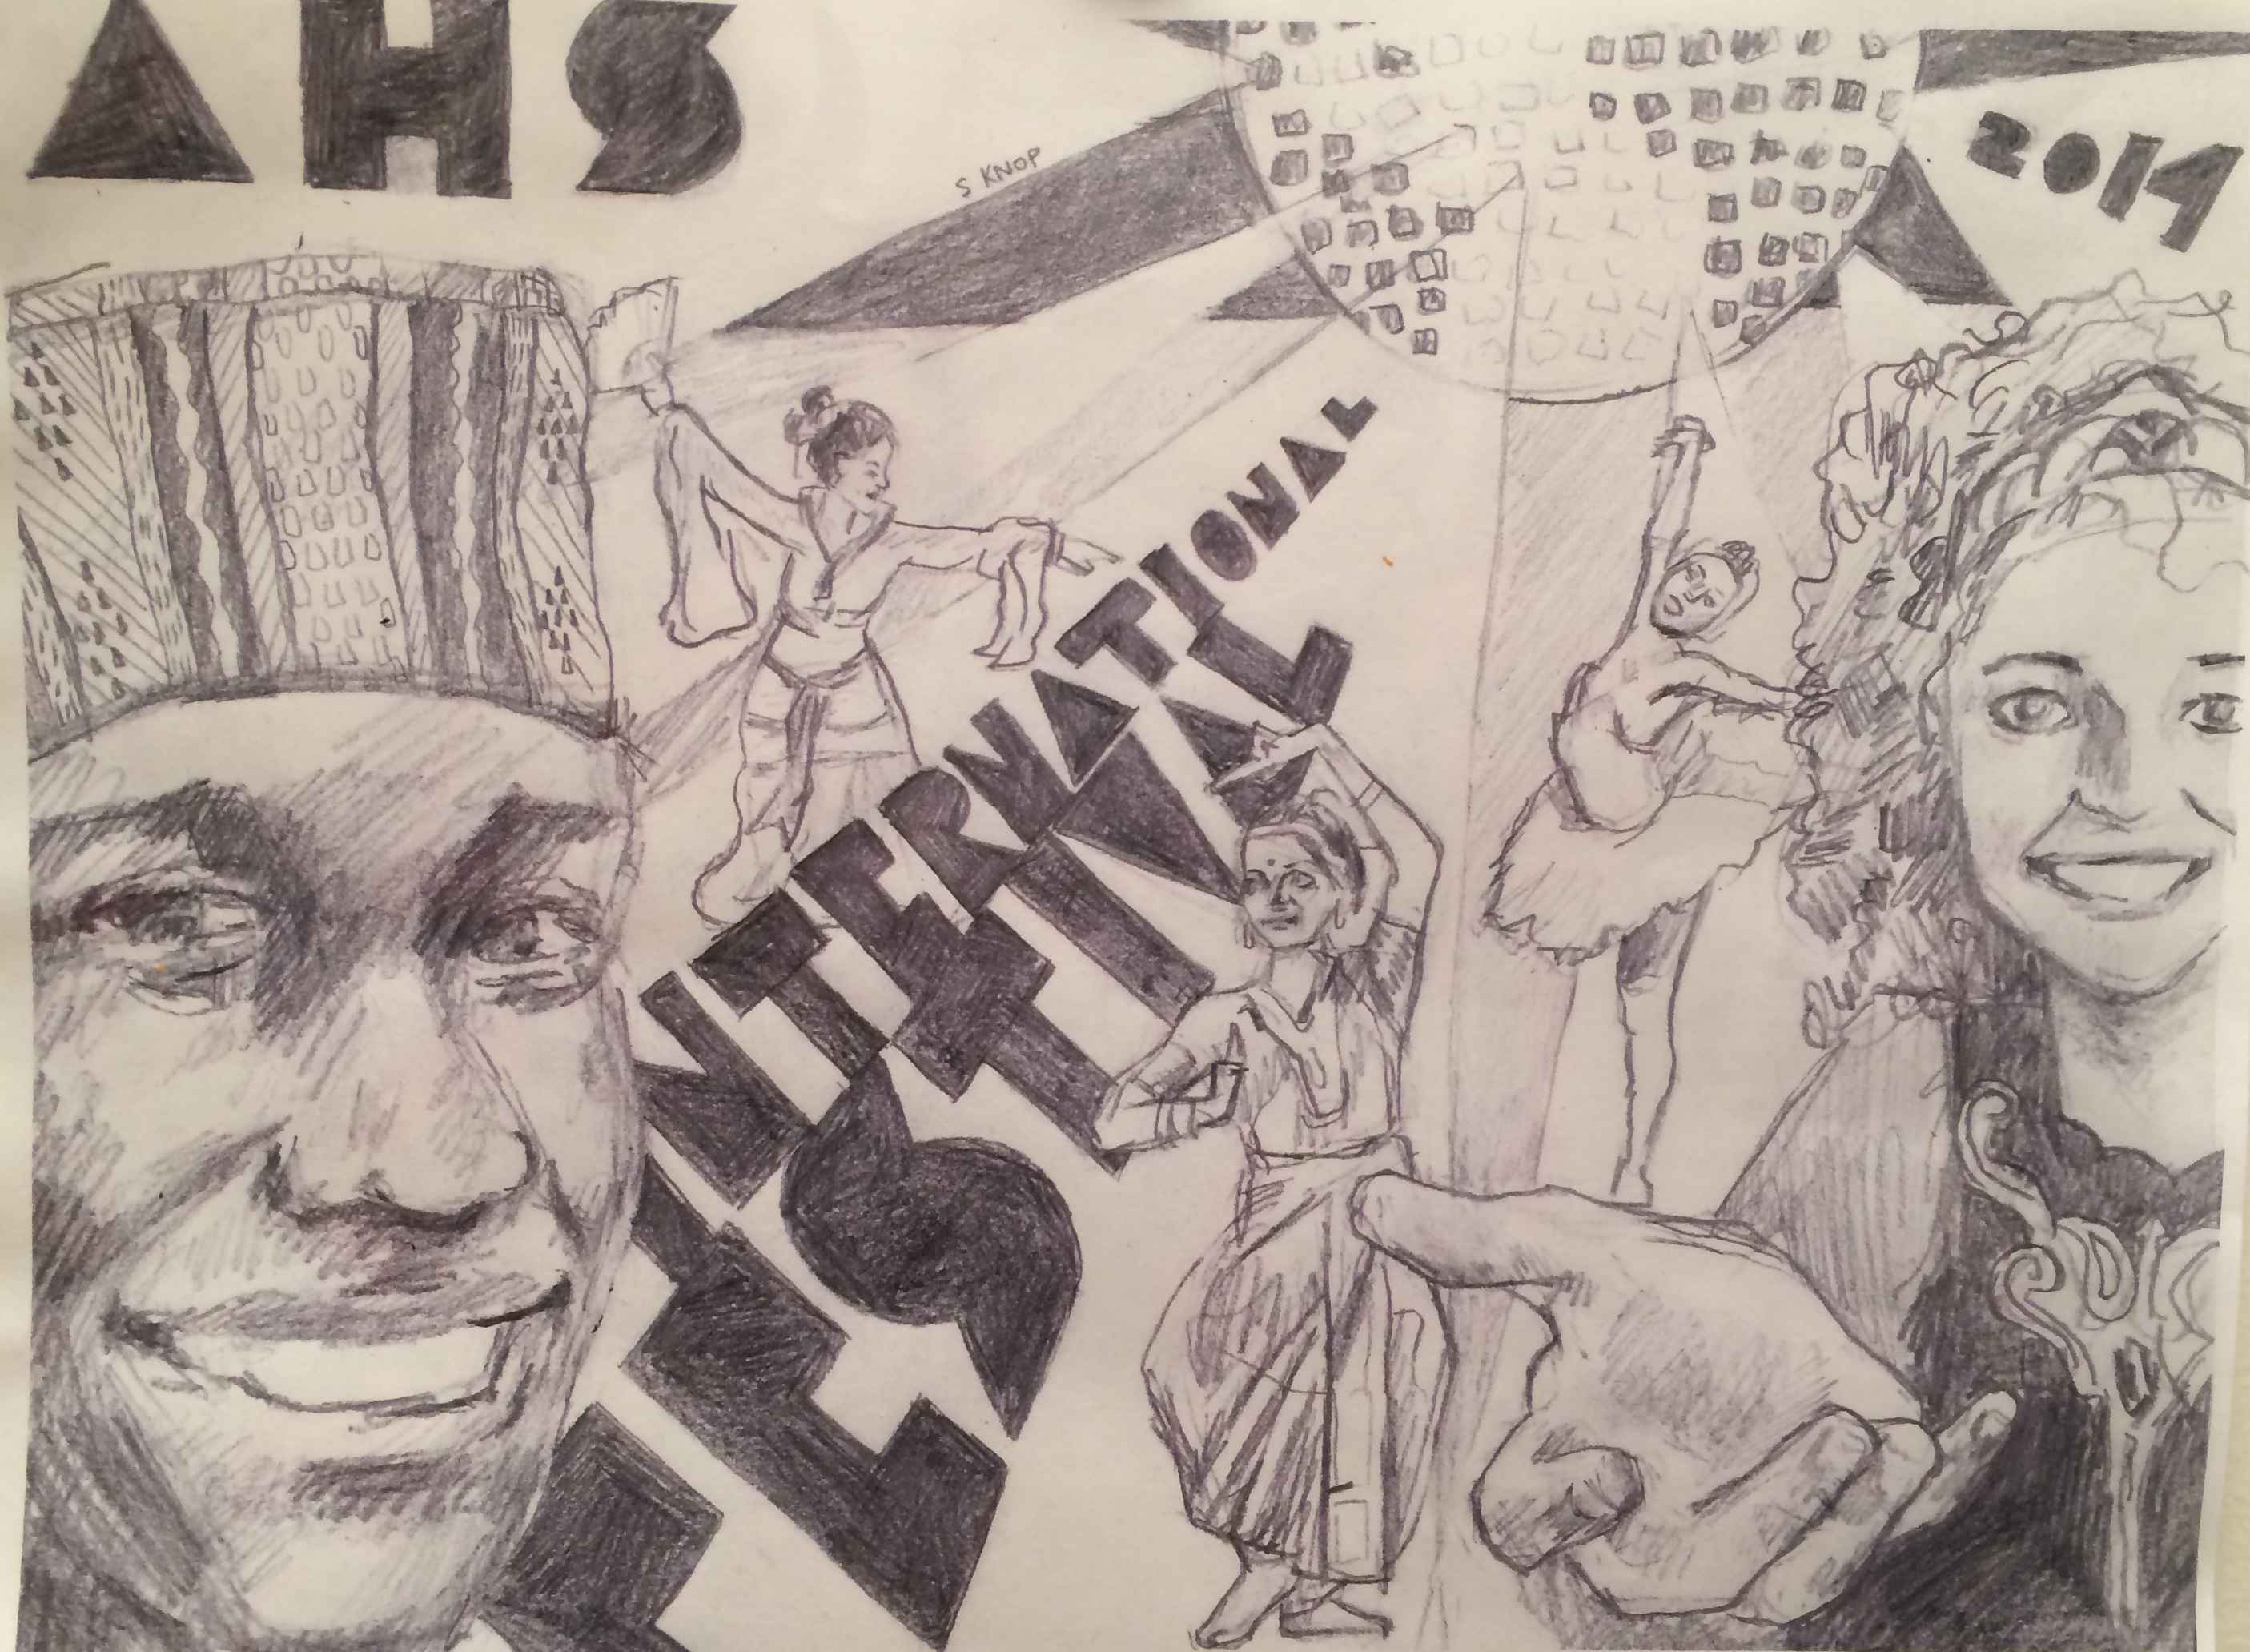 AHS
S KNOP
2014
INTERNATIONAL
FESTIVAL